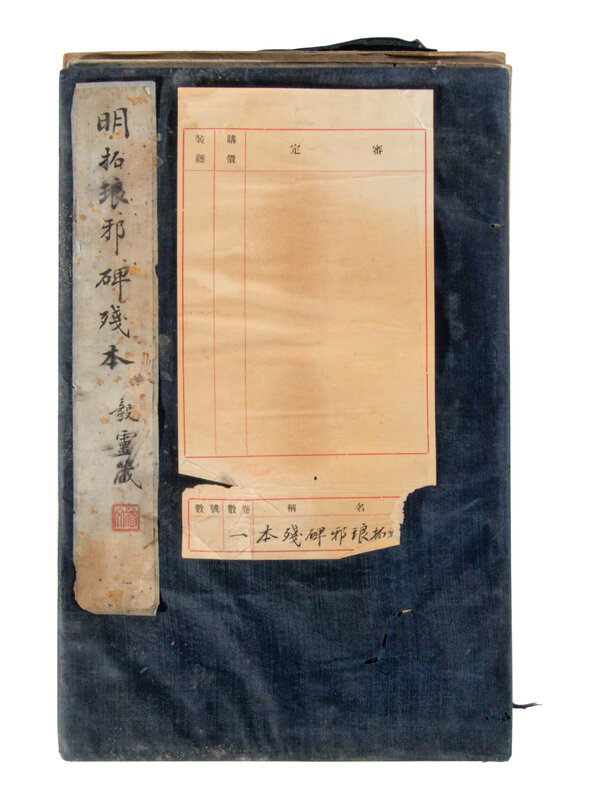 明拓琅邪碑殘本
毅靈藏
審定
購價
裝
名稱 卷數 號數
拓琅邪碑殘本 一